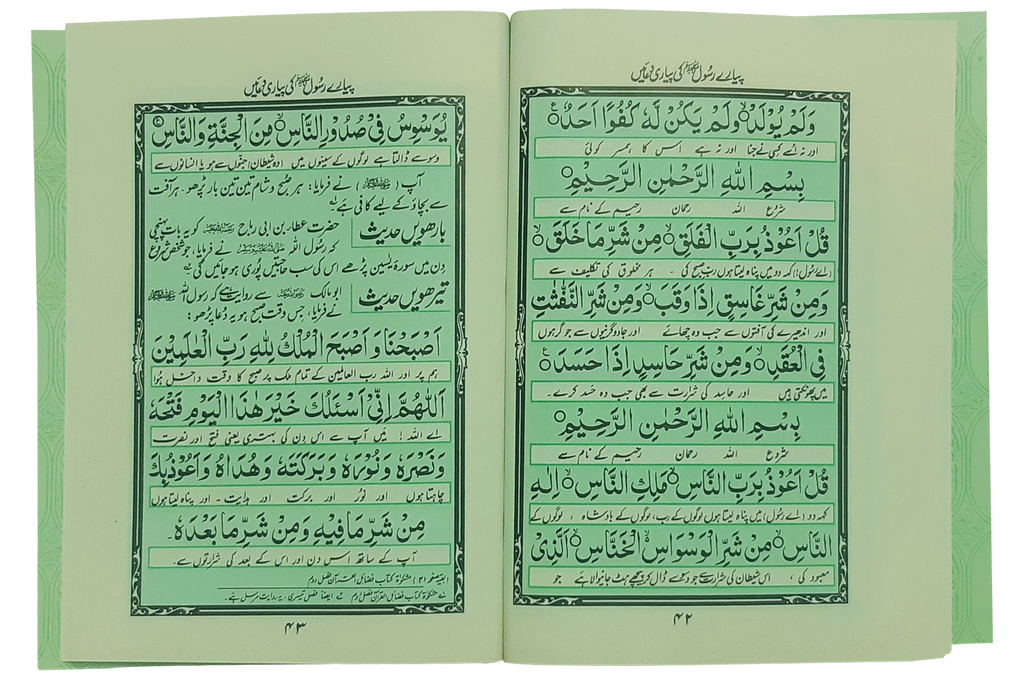 پیارے رسول ﷺ کی پیاری دعائیں
وَلَمْ يُوْلَدْ ۙ وَلَمْ يَكُنْ لَّهٗ كُفُوًا اَحَدٌ ۧ
اور نہ اسے کسی نے جنا اور نہ ہے اس کا ہمسر کوئی
بِسْمِ اللهِ الرَّحْمٰنِ الرَّحِيْمِ
شروع اللہ رحمان رحیم کے نام سے
قُلْ اَعُوْذُ بِرَبِّ الْفَلَقِ ۙ مِنْ شَرِّ مَا خَلَقَ ۙ
(اے رسول!) کہہ دو میں پناہ لیتا ہوں رب صبح کی ۔ ہر مخلوق کی تکلیف سے
وَمِنْ شَرِّ غَاسِقٍ اِذَا وَقَبَ ۙ وَمِنْ شَرِّ النَّفّٰثٰتِ
اور اندھیرے کی آفتوں سے جب وہ چھائے اور جادوگرنیوں سے جو گرہوں
فِي الْعُقَدِ ۙ وَمِنْ شَرِّ حَاسِدٍ اِذَا حَسَدَ ۧ
میں پھونکتی ہیں اور حاسد کی شرارت سے بھی جب وہ حسد کرے۔
بِسْمِ اللهِ الرَّحْمٰنِ الرَّحِيْمِ
شروع اللہ رحمان رحیم کے نام سے
قُلْ اَعُوْذُ بِرَبِّ النَّاسِ ۙ مَلِكِ النَّاسِ ۙ اِلٰهِ
کہہ دو (اے رسول) میں پناہ لیتا ہوں لوگوں کے رب، لوگوں کے بادشاہ ، لوگوں کے
النَّاسِ ۙ مِنْ شَرِّ الْوَسْوَاسِ ۙ الْخَنَّاسِ ۙ الَّذِيْ
معبود کی ، اس شیطان کی شرارت سے جو وسوسے ڈال کر پیچھے ہٹ جانیوالا ہے جو
۴۲
پیارے رسول ﷺ کی پیاری دعائیں
يُوَسْوِسُ فِيْ صُدُوْرِ النَّاسِ ۙ مِنَ الْجِنَّةِ وَالنَّاسِ
وسوسے ڈالتا ہے لوگوں کے سینوں میں (وہ شیطان) جنوں سے ہو یا انسانوں سے
آپ (ﷺ) نے فرمایا: ہر صبح و شام تین تین بار پڑھو۔ ہر آفت
سے بچاؤ کے لیے کافی ہے۔
بارھویں حدیث حضرت عطاء بن ابی رباح کو یہ بات پہنچی
کہ رسول اللہ ﷺ نے فرمایا، جو شخص شروع
دن میں سورۂ یٰسین پڑھے اس کی سب حاجتیں پوری ہو جائیں گی۔
تیرھویں حدیث ابو مالک سے روایت ہے کہ رسول اللہ ﷺ
نے فرمایا، جس وقت صبح ہو یہ دعا پڑھو:
اَصْبَحْنَا وَ اَصْبَحَ الْمُلْكُ لِلّٰهِ رَبِّ الْعٰلَمِيْنَ
ہم پر اور اللہ رب العالمین کے تمام ملک پر صبح کا وقت داخل ہوا
اَللّٰهُمَّ اِنِّيْ اَسْئَلُكَ خَيْرَ هٰذَا الْيَوْمِ فَتْحَهٗ
اے اللہ ! میں آپ سے اس دن کی بہتری یعنی فتح اور نصرت
وَنَصْرَهٗ وَنُوْرَهٗ وَبَرَكَتَهٗ وَهُدَاهُ وَاَعُوْذُ بِكَ
چاہتا ہوں اور نور اور برکت اور ہدایت ۔ اور پناہ لیتا ہوں
مِنْ شَرِّ مَا فِيْهِ وَمِنْ شَرِّ مَا بَعْدَهٗ۔
آپ کے ساتھ اس دن اور اس کے بعد کی شرارتوں سے۔
(بقیہ صفحہ ۴۱) مشکوٰۃ کتاب فضائل القرآن فصل دوم
مشکوٰۃ کتاب فضائل القرآن فصل دوم ایضاً فصل تیسری، یہ روایت مرسل ہے۔
۴۳